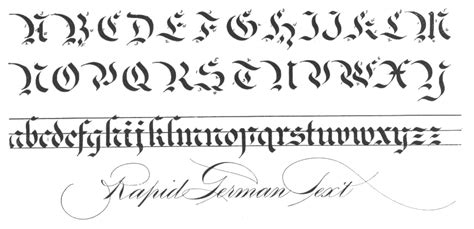 A B C D E F G H I J K L M
N O P Q R S T U V W X Y
abcdefghijklmnopqrstuvwxyzz
Rapid German Text